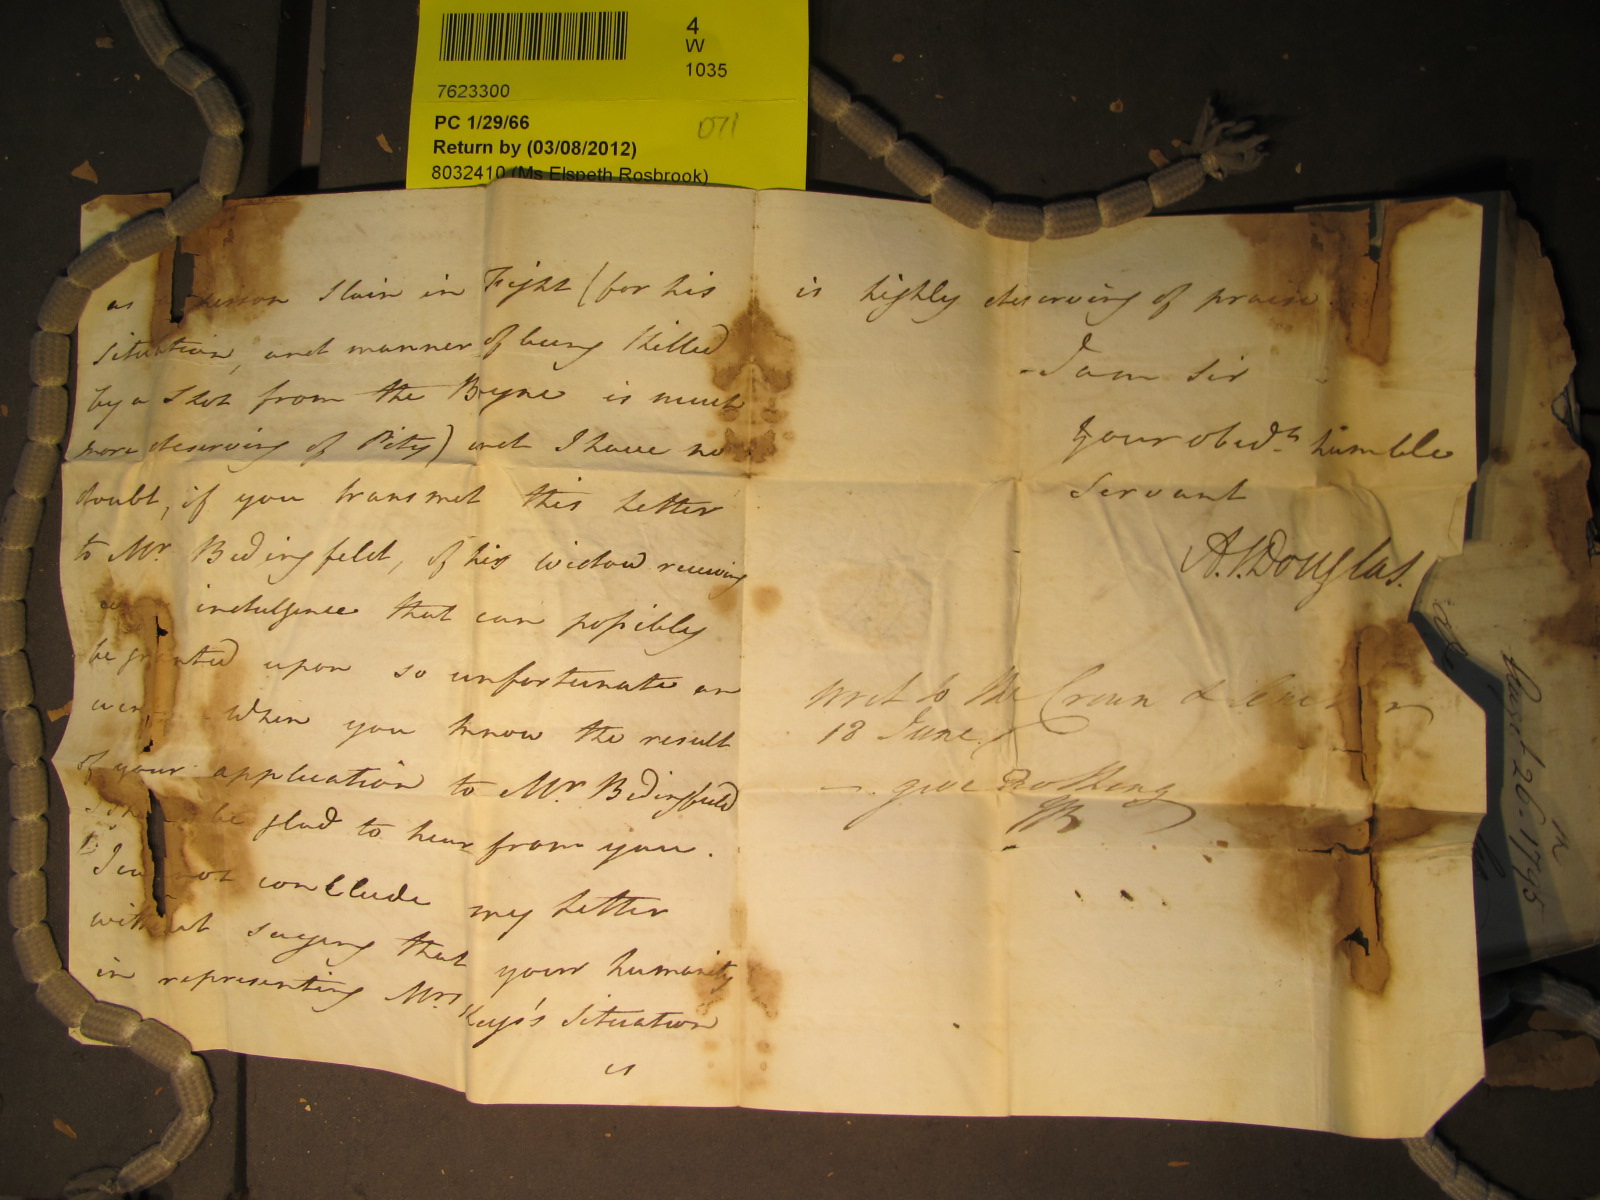 4
W
1035
7623300
PC 1/29/66
071
Return by (03/08/2012)
8032410 (Ms Elspeth Rosbrook)
as person Slain in Fight (for his
situation, and manner of being killed
by a Shot from the Bryne is much
more deserving of Pity) and I have no
doubt, if you transmet this letter
to Mr. Bedingfeld, of his widow receiving
indulgence that can possibly
be granted upon so unfortunate an
when you know the result
of your application to Mr Bedingfield
be glad to hear from you.
I cannot conclude my letter
without saying that your humanity
in representing Mrs Keys's situation
is
is highly deserving of praise.
I am Sir
Your obedt humble
Servant
A. S. Douglas.
writ to the Crown &
18 June
give Nothing
26th 1795